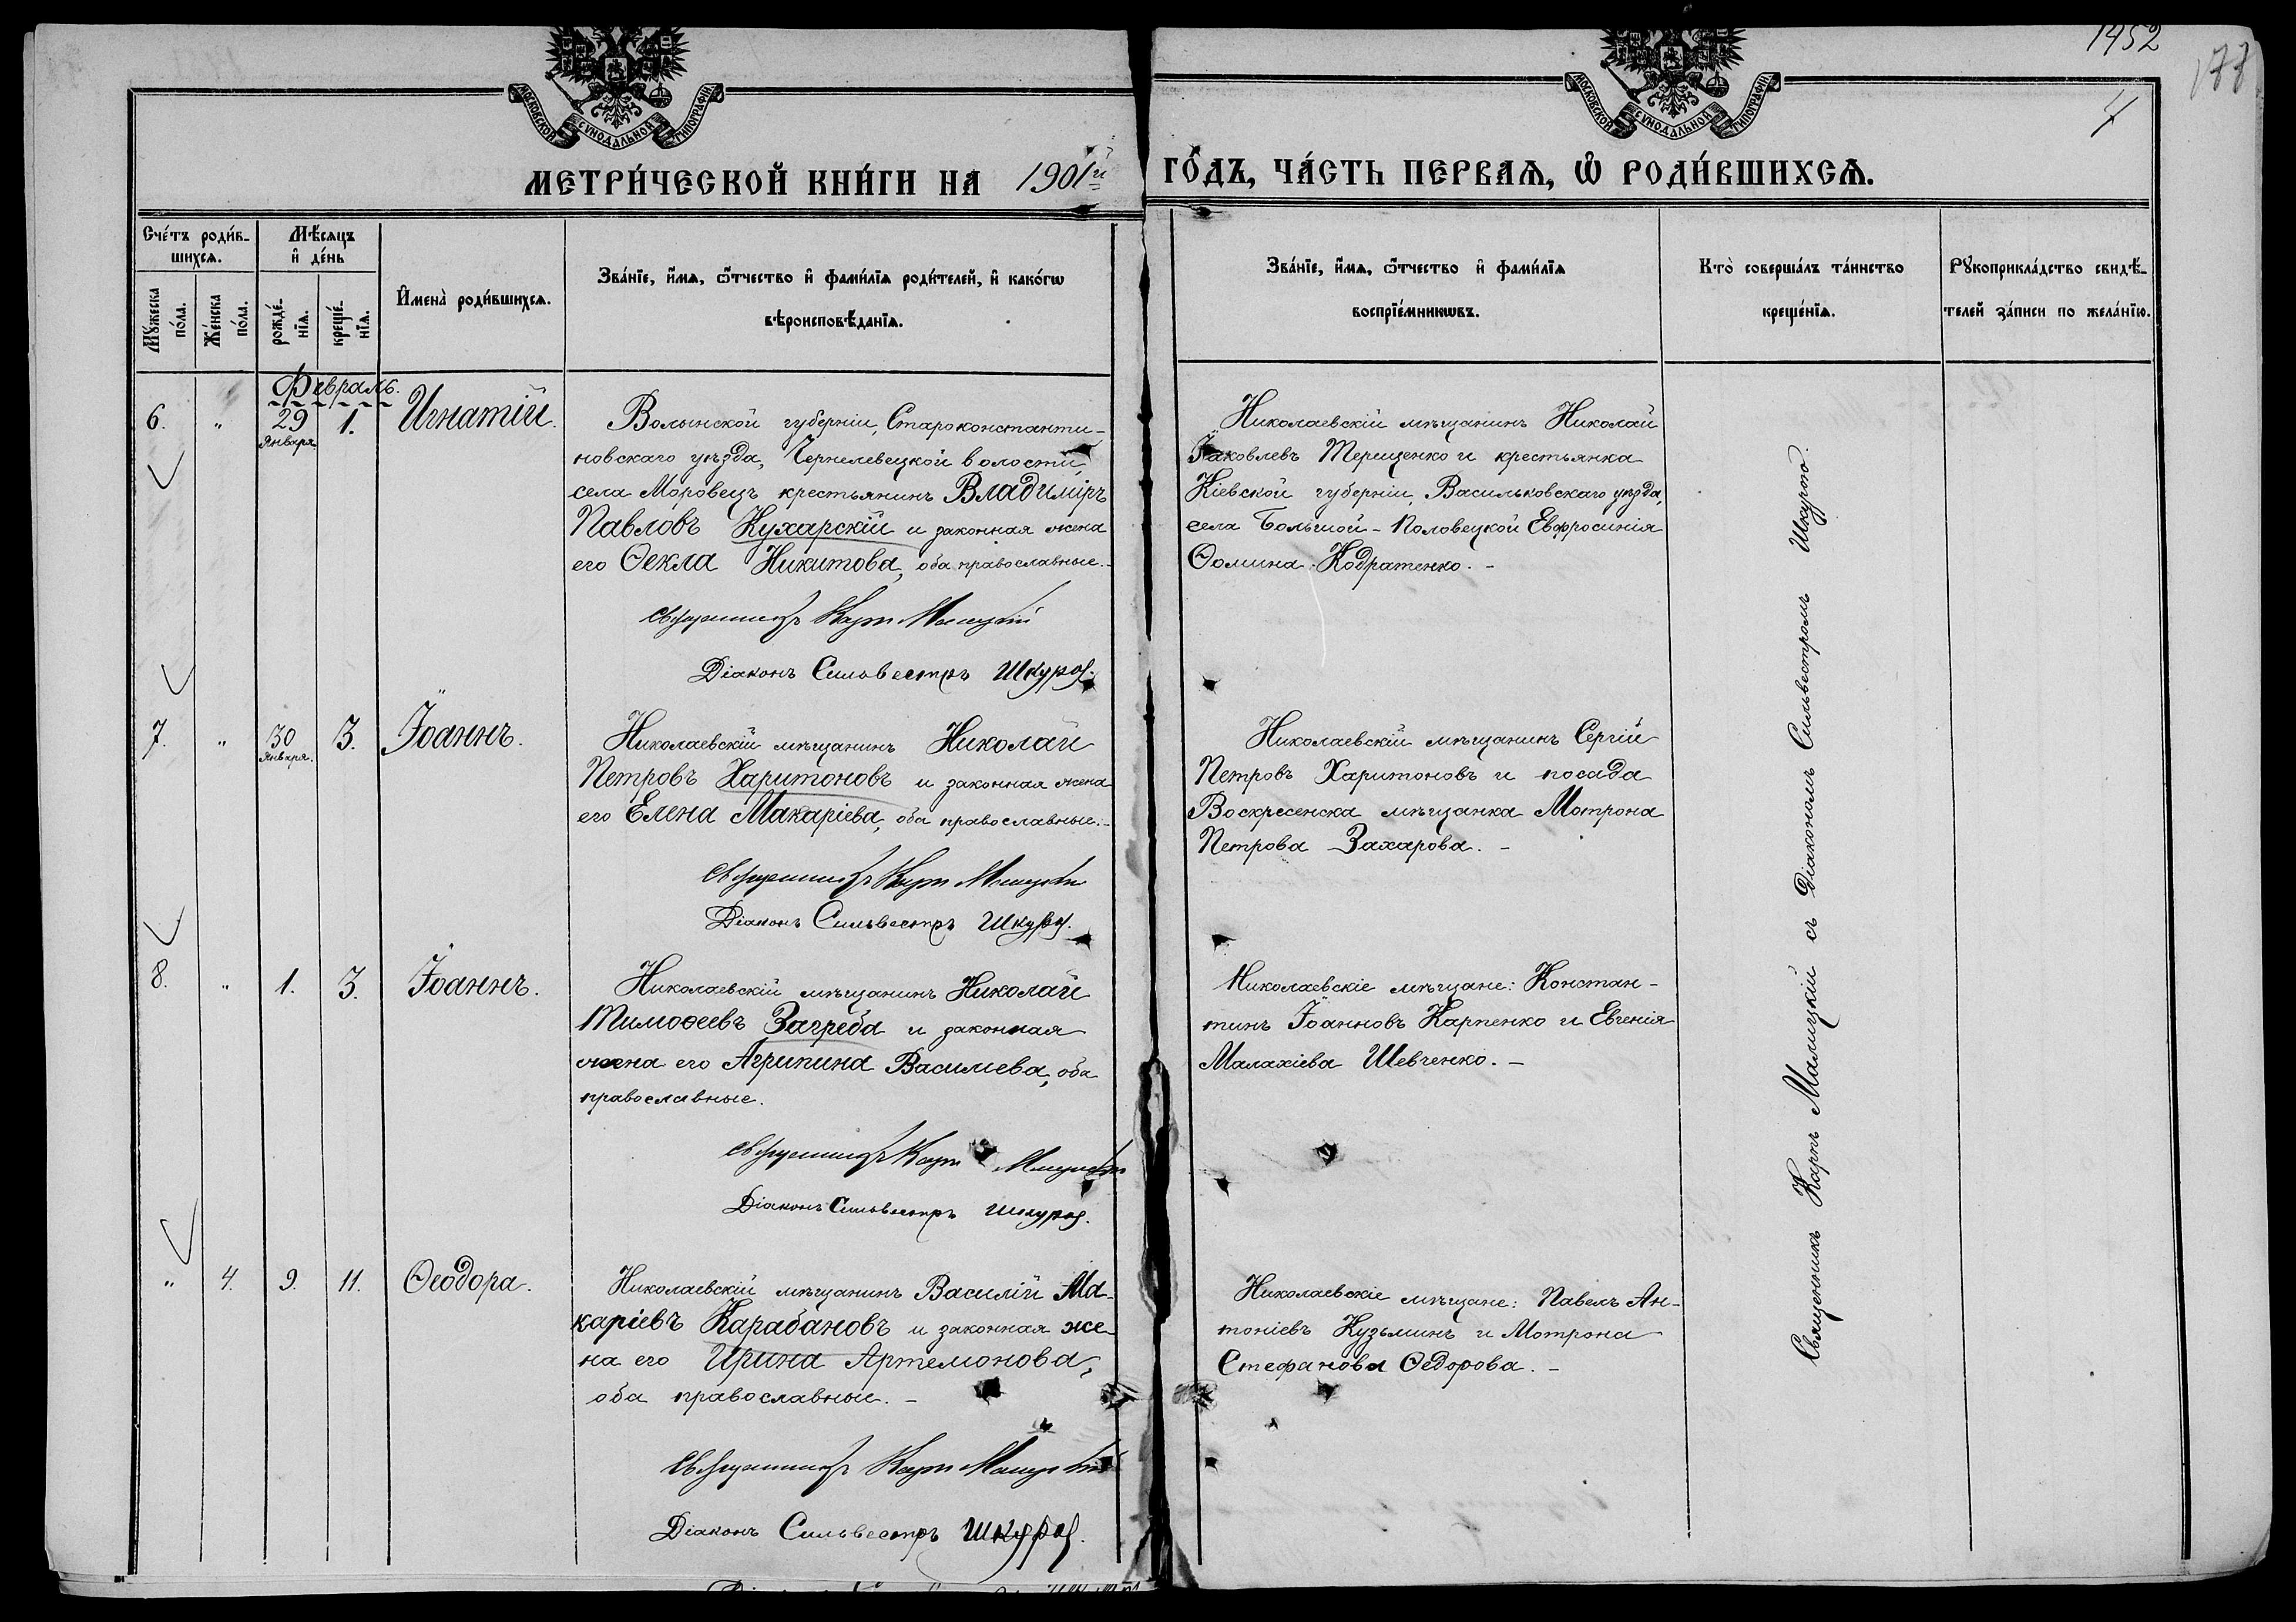 1452
177
7
МОСКОВСКОЙ СѴНОДАЛЬНОЙ ТИПОГРАФІИ
МОСКОВСКОЙ СѴНОДАЛЬНОЙ ТИПОГРАФІИ
МЕТРИ́ЧЕСКОЙ КНИ́ГИ НА 1901й ГО́ДЪ, ЧА́СТЬ ПЕРВАѦ, Ѡ҆ РОДИ́ВШИХСѦ.
Сче́тъ роди́в-
шихсѧ.
Мꙋ́жеска
по́ла.
Же́нска
по́ла.
Мѣ́сѧцъ
и҆ де́нь
рожде́-
нїѧ.
креще́-
нїѧ.
И҆мена̀ роди́вшихсѧ.
Зва́нїе, и҆́мѧ, ѻ҆́тчество и҆ фами́лїѧ роди́телей, и҆ како́гѡ
вѣроисповѣ́данїѧ.
Зва́нїе, и҆́мѧ, ѻ҆́тчество и҆ фами́лїѧ
воспрїе́мникѡвъ.
Кто̀ соверша́лъ та́инство
креще́нїѧ.
Рꙋкоприкла́дство свидѣ́-
телей за́писи по жела́нїю.
Февраль.
6. " 29 Января 1. Игнатій.
Волынской губерніи, Староконстанти-
новскаго уѣзда, Чернелевецкой волости,
села Моровецъ крестьянинъ Владиміръ
Павловъ Кухарскій и законная жена
его Ѳекла Никитова, оба православные.-
Священникъ Карпъ Малицкій
Діаконъ Сильвестръ Шкуро.
Николаевскій мѣщанинъ Николай
Іаковлевъ Терещенко и крестьянка
Кіевской губерніи, Васильковскаго уѣзда,
села Большой-Половецкой Евфросинія
Ѳомина Кодратенко. -
7. " 30 Января. 3. Іоаннъ.
Николаевскій мѣщанинъ Николай
Петровъ Харитоновъ и законная жена
его Елена Макаріева, оба православные.-
Священникъ Карпъ Малицкій
Діаконъ Сильвестръ Шкуро.
Николаевскій мѣщанинъ Сергій
Петровъ Харитоновъ и посада
Воскресенска мѣщанка Мотрона
Петрова Захарова. -
8. " 1. 3. Іоаннъ.
Николаевскій мѣщанинъ Николай
Тимоѳеевъ Загреба и законная
жена его Агрипина Василиева, оба
православные.
Священникъ Карпъ Малицкій
Діаконъ Сильвестръ Шкуро.
Николаевскіе мѣщане: Констан-
тинъ Іоанновъ Карпенко и Евгенія
Малахіева Шевченко. -
" 4. 9. 11. Ѳеодора.
Николаевскій мѣщанинъ Василій Ма-
каріевъ Карабановъ и законная же-
на его Ирина Артемонова,
оба православные. -
Священникъ Карпъ Малицкій
Діаконъ Сильвестръ Шкуро.
Николаевскіе мѣщане: Павелъ Ан-
тоніевъ Кузьминъ и Мотрона
Стефанова Ѳедорова. -
Священникъ Карпъ Малицкій съ Діакономъ Сильвестромъ Шкурою.